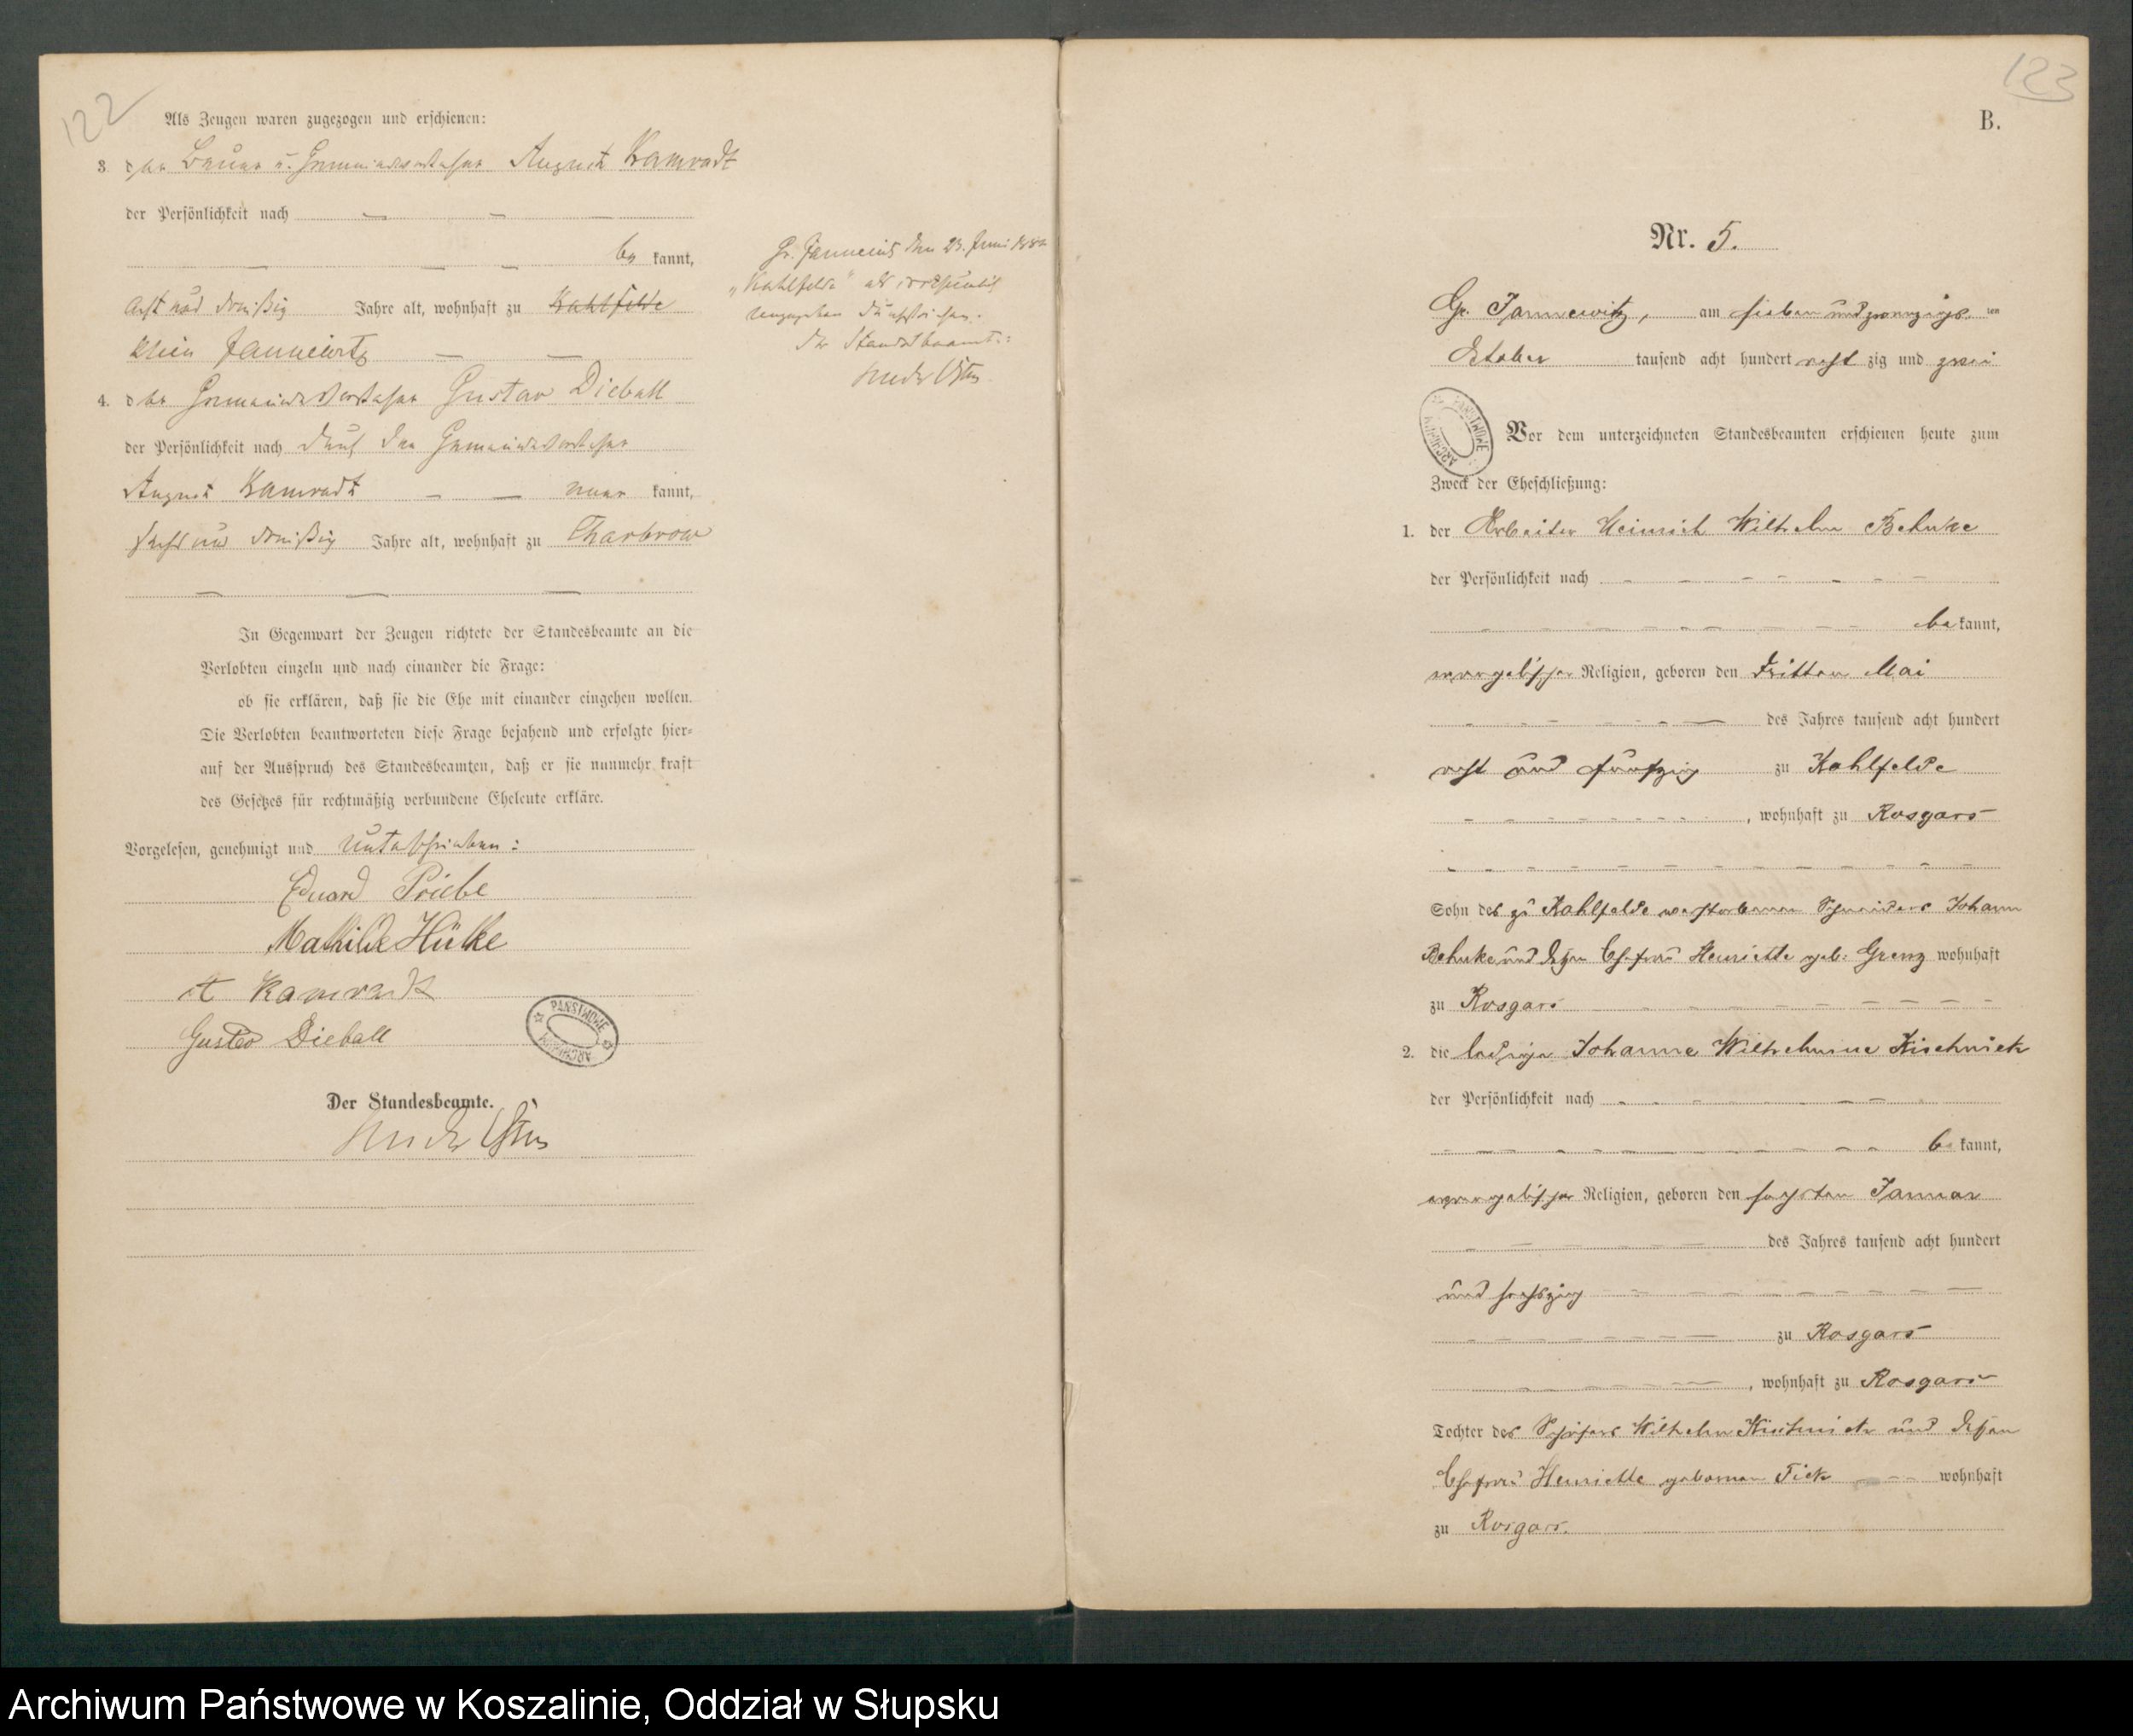 122
Als Zeugen waren zugezogen und erschienen:
3. der Bauer u. Gemeindevorsteher August Kamradt
der Persönlichkeit nach — — —
— — — be kannt,
acht und dreißig Jahre alt, wohnhaft zu Kahlfelde
Klein Jannewitz — —
4. der Gemeindevorsteher Gustav Dieball
der Persönlichkeit nach durch den Gemeindevorsteher
August Kamradt — — aner kannt,
sechs und dreißig Jahre alt, wohnhaft zu Charbrow
— — —
In Gegenwart der Zeugen richtete der Standesbeamte an die
Verlobten einzeln und nach einander die Frage:
ob sie erklären, daß sie die Ehe mit einander eingehen wollen.
Die Verlobten beantworteten diese Frage bejahend und erfolgte hier-
auf der Ausspruch des Standesbeamten, daß er sie nunmehr kraft
des Gesetzes für rechtmäßig verbundene Eheleute erkläre.
Vorgelesen, genehmigt und unterschrieben:
Eduard Priebe
Mathilde Hütke
A Kamradt
Gustav Dieball
PAŃSTWOWE ARCHIWUM
Der Standesbeamte.
Gr. Jannewitz den 23. Juni 188
„Kahlfelde" als irrthümlich
angegeben durchstrichen.
Der Standesbeamte:
123
B.
Nr. 5.
Gr. Jannewitz, am sieben und zwanzigs ten
October tausend acht hundert acht zig und zwei
PAŃSTWOWE ARCHIWUM
Vor dem unterzeichneten Standesbeamten erschienen heute zum
Zweck der Eheschließung:
1. der Arbeiter Heinrich Wilhelm Behnke
der Persönlichkeit nach
be kannt,
evangelischer Religion, geboren den dritten Mai
des Jahres tausend acht hundert
acht und fünfzig zu Kahlfelde
, wohnhaft zu Rosgars
Sohn des zu Kahlfelde verstorbenen Schneiders Johann
Behnke und dessen Ehefrau Henriette geb. Grenz wohnhaft
zu Rosgars
2. die ledige Johanne Wilhelmine Kischnick
der Persönlichkeit nach
be kannt,
evangelischer Religion, geboren den sechsten Januar
des Jahres tausend acht hundert
und sechszig
zu Rosgars
, wohnhaft zu Rosgars
Tochter des Schäfers Wilhelm Kischnick und dessen
Ehefrau Henriette geborenen Fick wohnhaft
zu Rosgars.
Archiwum Państwowe w Koszalinie, Oddział w Słupsku